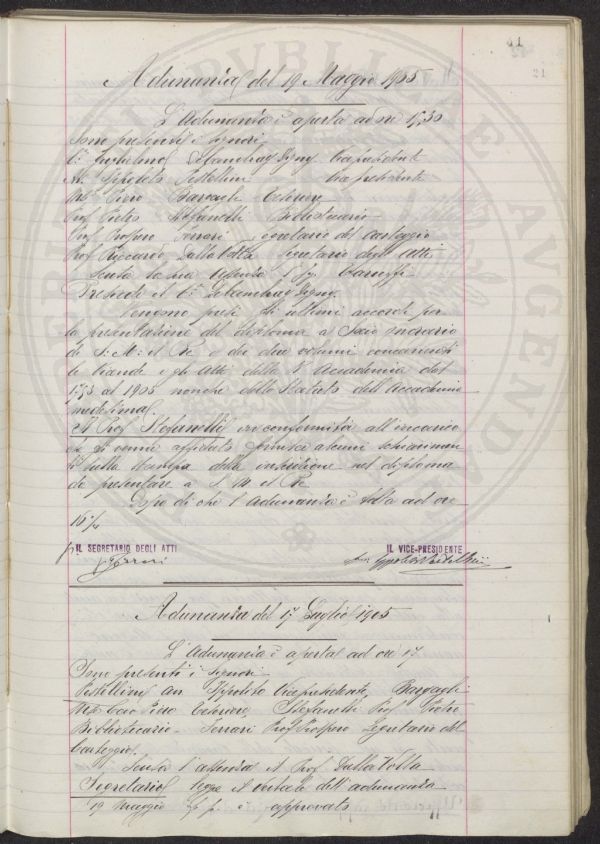 41
21
Adunanza del 19 Maggio 1905
L'Adunanza è aperta ad ore 17,30
Sono presenti i Signori
Vicepresidente
Pestellini Vicepresidente
Piero Bargagli Tesoriere
Prof. Pietro Stefanelli Bibliotecario
Prof. Prospero Ferrari Segretario del carteggio
Prof. Riccardo Dalla Volta Segretario degli Atti
Scusa la sua assenza
Presiede il
Vengono presi gli ultimi accordi per
la presentazione del diploma a Socio onorario
di S. M. il Re e dei due volumi concernenti
le vicende e gli Atti della R. Accademia dal
1753 al 1905 nonché dello Statuto dell'Accademia
medesima.
Il Prof. Stefanelli in conformità all'incarico
che gli venne affidato fornisce alcuni schiarimen
ti sulla stampa della iscrizione nel diploma
da presentare a S. M. il Re
Dopo di che l'Adunanza è tolta ad ore
p. IL SEGRETARIO DEGLI ATTI
IL VICE-PRESIDENTE
P. Ferrari
Ippolito Pestellini
Adunanza del 17 Luglio 1905
L'Adunanza è aperta ad ore 17
Sono presenti i Signori
Pestellini Ippolito Vicepresidente, Bargagli
Piero Tesoriere, Stefanelli Prof. Pietro
Bibliotecario - Ferrari Prof. Prospero Segretario del
Carteggio.
Scusa l'assenza il Prof. Dalla Volta
Segretario legge il verbale dell'adunanza
19 Maggio p. p. è approvato